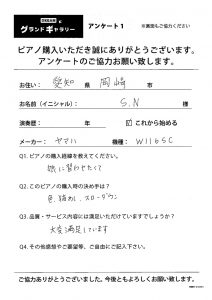 DREAM と
グランドギャラリー アンケート1 ※裏面もご協力ください
ピアノ購入いただき誠にありがとうございます。
アンケートのご協力お願い致します。
お住い: 愛知 県 岡崎 市
お名前(イニシャル): S.N 様
演奏歴: 年 ☑ これから始める
メーカー: ヤマハ 機種: W116SC
Q1. ピアノの購入経緯を教えてください。
娘に習わせたくて
Q2. このピアノの購入時の決め手は?
色、猫あし、スローダウン
Q3. 品質・サービス内容には満足いただけていますでしょうか?
大変満足しています
Q4. その他感想やご要望等、ご自由にご記入下さい。
ご協力ありがとうございました。今後ともよろしくお願い致します。